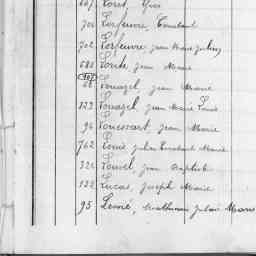 Yves
702 Lorfeuvre, Constant
702 Lorfeuvre, Jean Marie Julien
580 Jean Marie
107
68 Louazel Jean Marie
123 Louazel Jean Marie Louis
94 Jean Marie
762 Louis Julien Constant Marie
322 Louvel, Jean Baptiste
122 Lucas, Joseph Marie
95 Mathurin Julien Marie